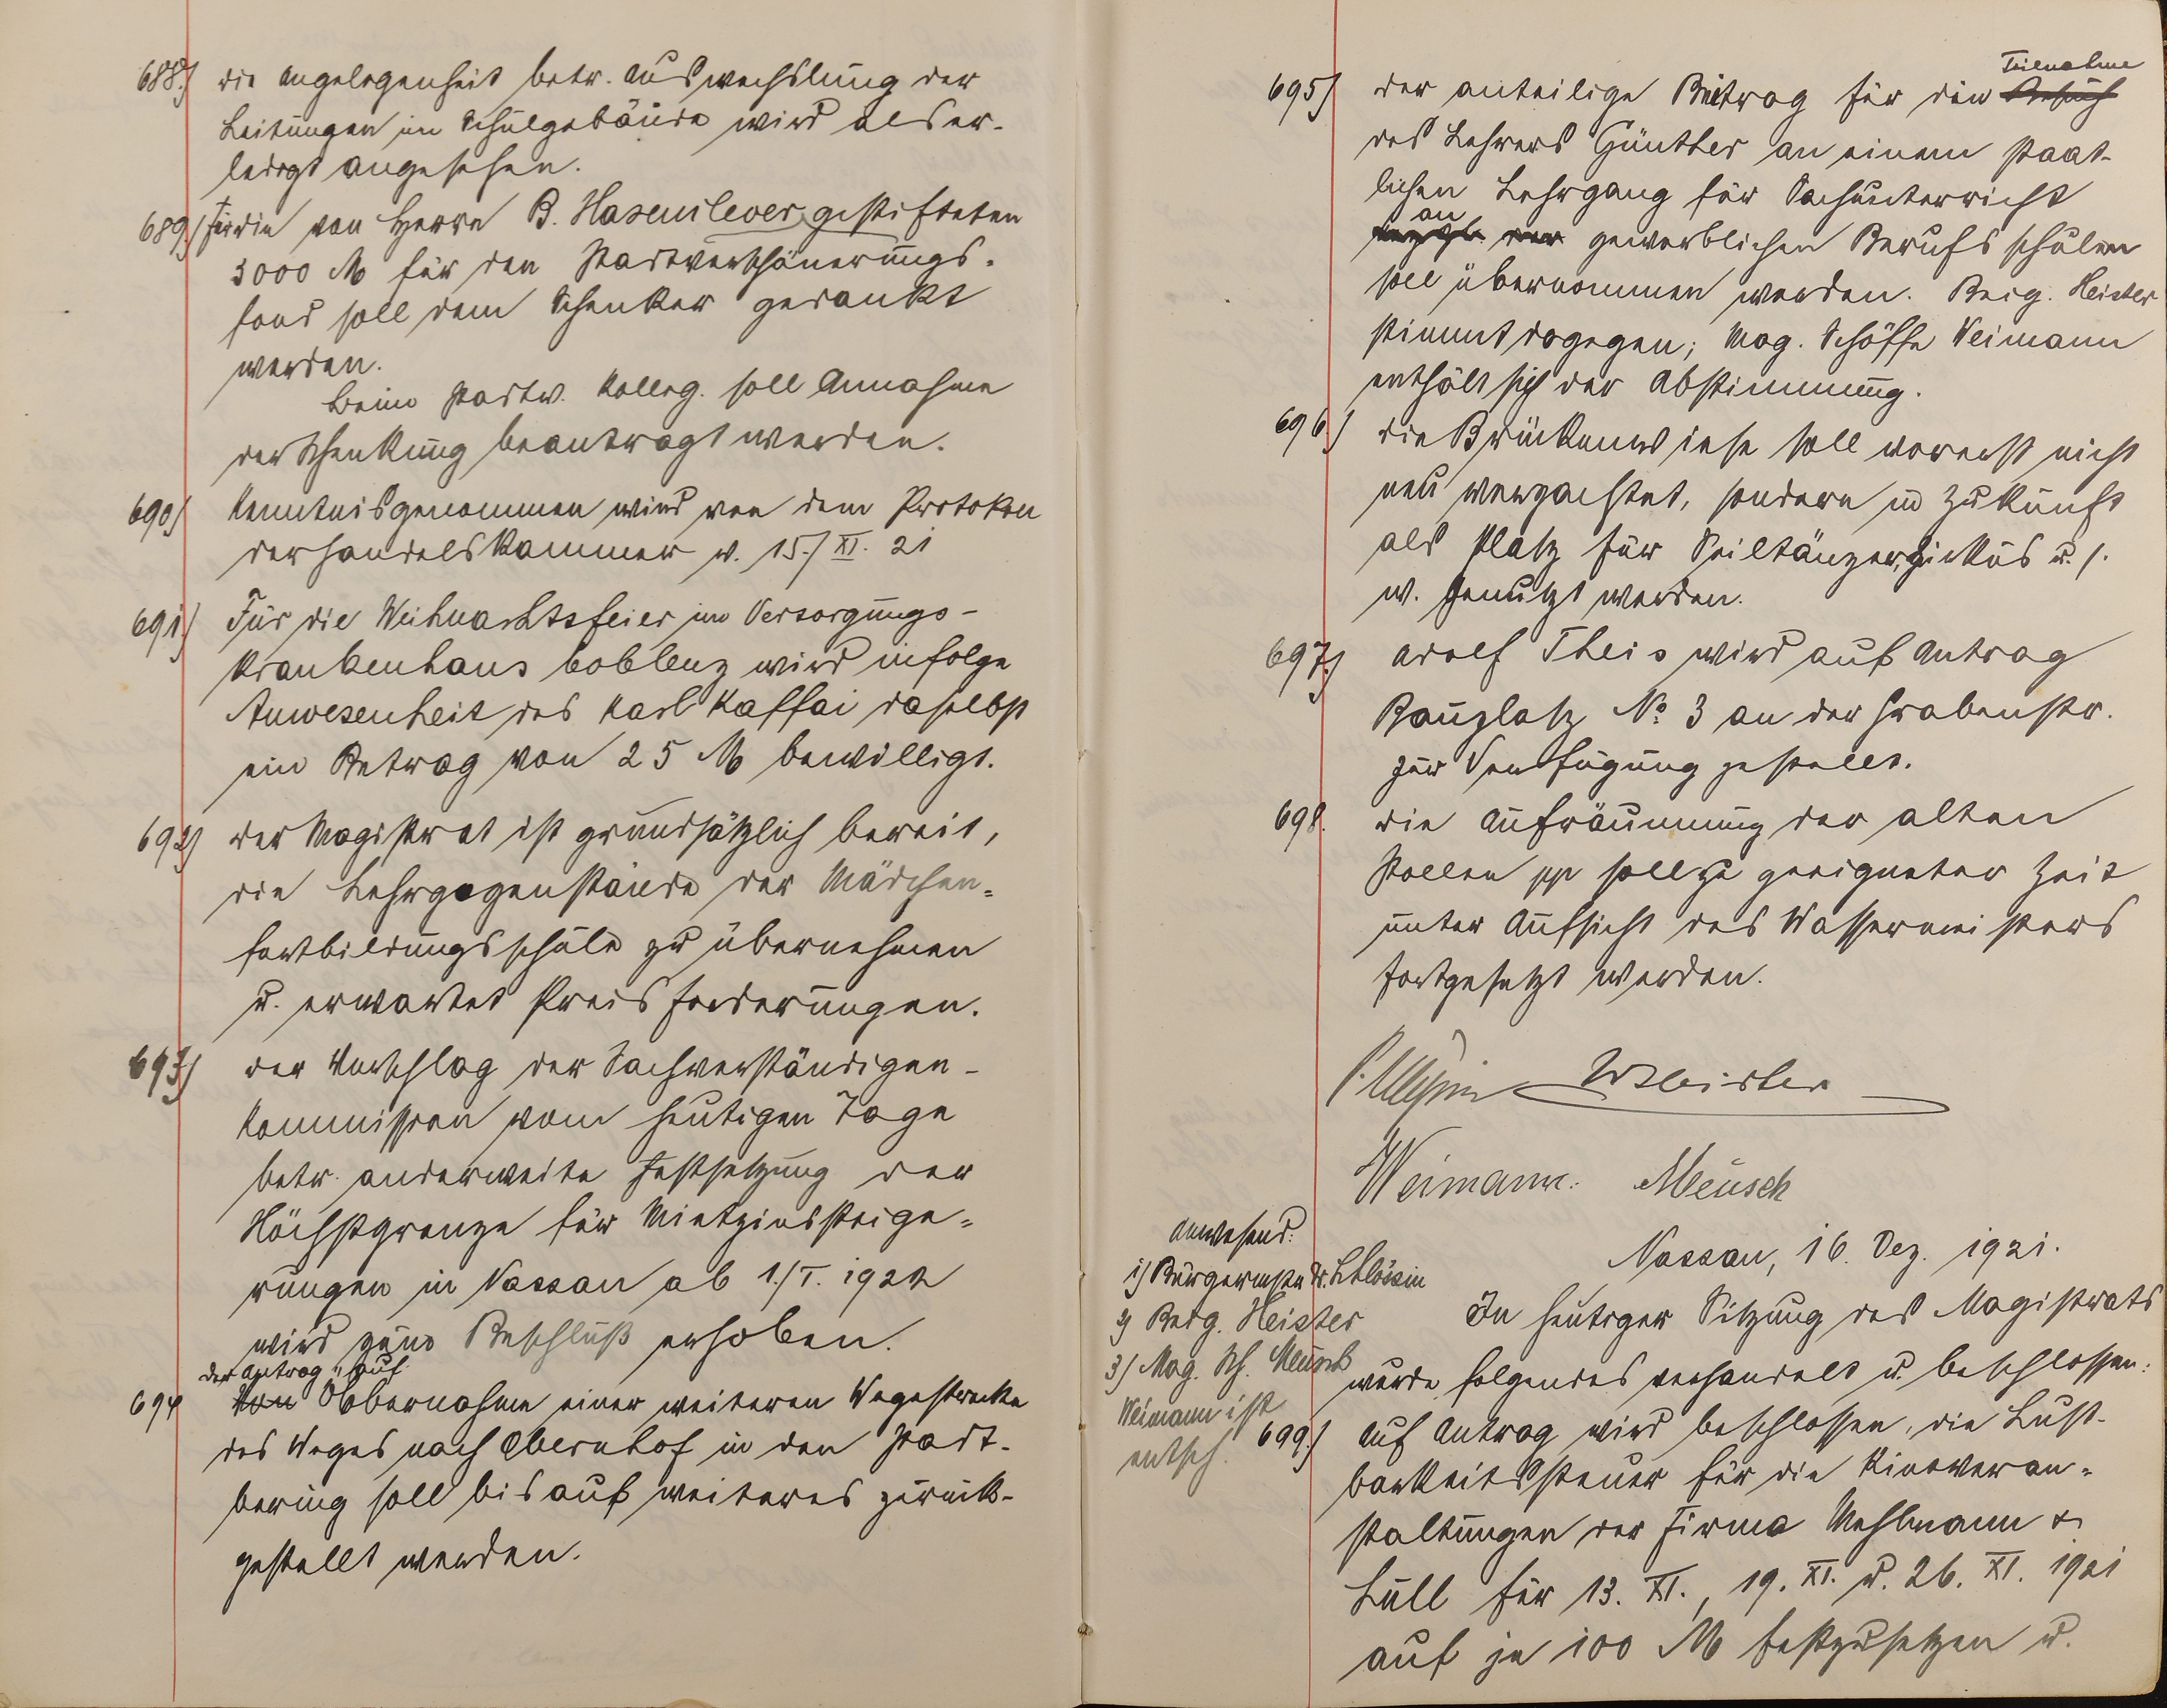 688.) die Angelegenheit betr. Auswechslung der
Leitungen im Schulgebäude wird als er-
ledigt angesehen.
689.) Für die von Herrn B. Hasenclever gestifteten
3000 M für den Stadtverschönerungs-
fond soll dem Schenker gedankt
werden.
Beim Stadtv. Kolleg. soll Annahme
der Schenkung beantragt werden.
690) Kenntnisgenommen wird von dem Protokoll
der Handelskammer v. 15./XI. 21
691.) Für die Weihnachtsfeier im Versorgungs-
krankenhaus Coblenz wird infolge
Anwesenheit des Karl Kaffai daselbst
ein Betrag von 25 M bewilligt.
692) der Magistrat ist grundsätzlich bereit,
die Lehrgegenstände der Mädchen-
fortbildungsschule zu übernehmen
u. erwartet Preisforderungen.
693) der Vorschlag der Sachverständigen-
Kommission vom heutigen Tage
betr. anderweite Festsetzung der
Höchstgrenze für Mietzinssteige-
rungen in Nassau ab 1./I. 1922
wird zum Beschluß erhoben.
der Antrag auf
694 Von Übernahme einer weiteren Wegestrecke
des Weges nach Obernhof in den Stadt-
bering soll bis auf weiteres zurück-
gestellt werden.
Teilnahme
695) der anteilige Beitrag für den Besuch
des Lehrers Günther an einem staat-
lichen Lehrgang für Fachunterricht
an
der gewerblichen Berufsschulen
soll übernommen werden. Beig. Heister
stimmt dagegen; Mag. Schöffe Weimann
enthält sich der Abstimmung.
696) die Brückenwiese soll vorerst nicht
neu verpachtet, sondern in Zukunft
als Platz für Seiltänzer, Zirkus u. s.
w. genutzt werden.
697.) Adolf Theis wird auf Antrag
Bauplatz No 3 an der Grabenstr.
zur Verfügung gestellt.
698. die Aufräumung der alten
Stollen pp soll zu geeigneter Zeit
unter Aufsicht des Wassermeisters
fortgesetzt werden.
Heister
Weimann. Meusch
Nassau, 16. Dez. 1921.
Anwesend:
1) Bürgermstr
2) Beig. Heister
3) Mag. Sch. Meusch
Weimann ist
entsch.
In heutiger Sitzung des Magistrats
wurde folgendes verhandelt u. beschlossen:
699.) Auf Antrag wird beschlossen, die Lust-
barkeitssteuer für die Kinoveran-
staltungen der Firma Mehlmann &
Lüll für 13. XI., 19. XI. u. 26. XI. 1921
auf je 100 M festzusetzen u.